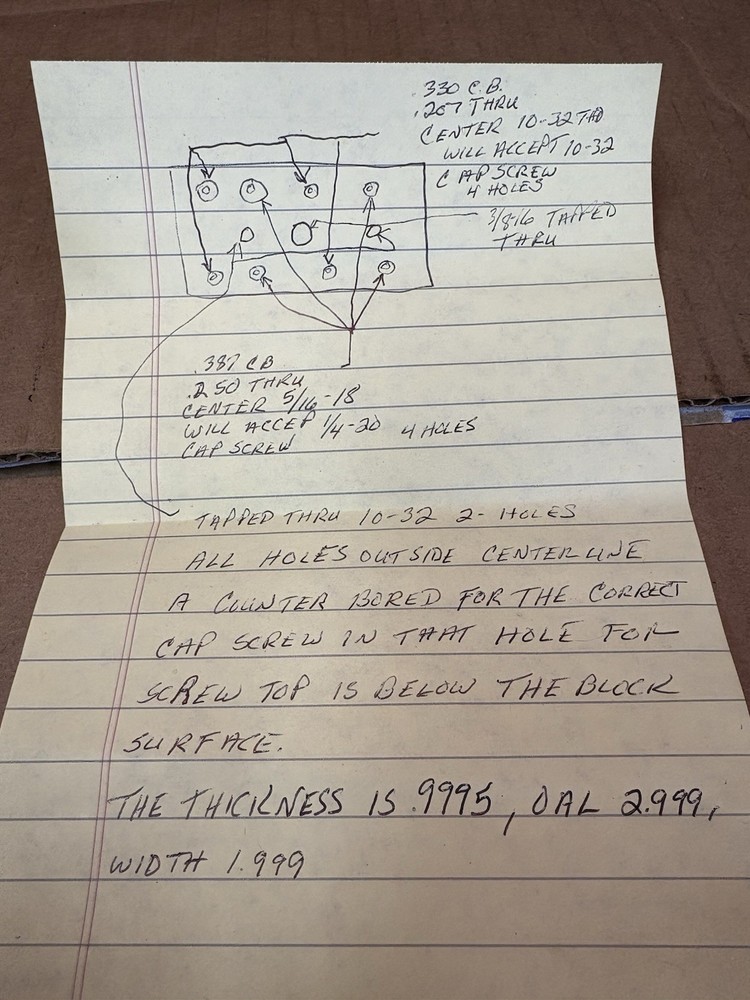 .330 C.B.
.207 THRU
CENTER 10-32 TAP
WILL ACCEPT 10-32
CAP SCREW
4 HOLES
3/8-16 TAPPED
THRU
.387 CB
.250 THRU
CENTER 5/16-18
WILL ACCEP 1/4-20 4 HOLES
CAP SCREW
TAPPED THRU 10-32 2- HOLES
ALL HOLES OUTSIDE CENTERLINE
A COUNTER BORED FOR THE CORRECT
CAP SCREW IN THAT HOLE FOR
SCREW TOP IS BELOW THE BLOCK
SURFACE.
THE THICKNESS IS .9995, OAL 2.999,
WIDTH 1.999